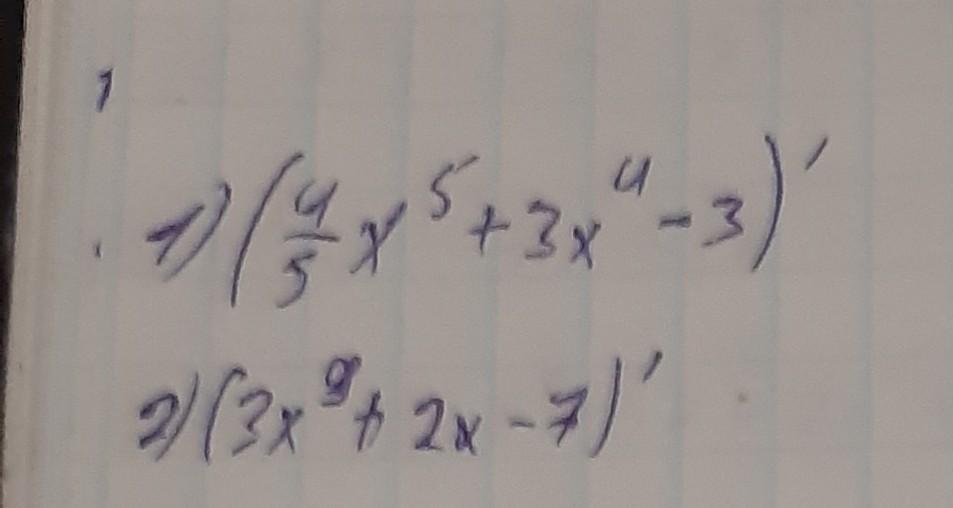 1) (4/5 x^5 + 3x^4 - 3)'
2) (3x^9 + 2x - 7)'